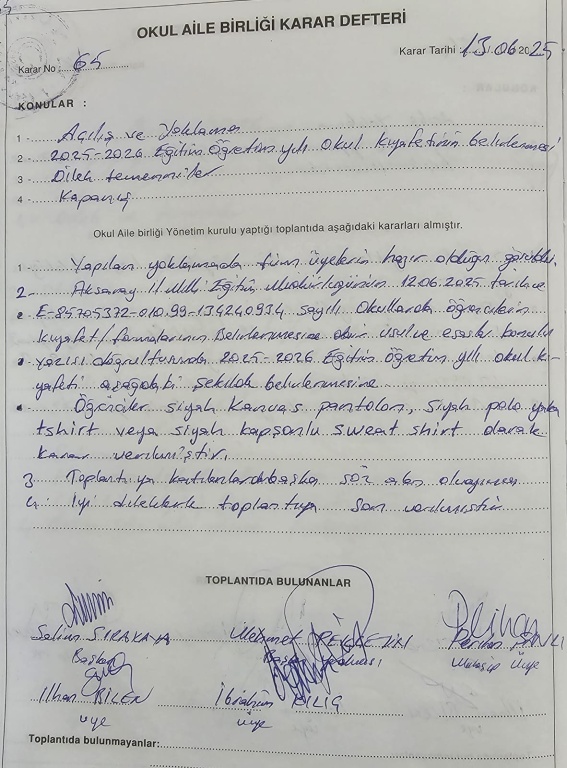 OKUL AİLE BİRLİĞİ KARAR DEFTERİ
Karar Tarihi : 13.06.2025
Karar No : 65
KONULAR :
1 - Açılış ve Yoklama
2 - 2025-2026 Eğitim Öğretim yılı okul kıyafetinin belirlenmesi
3 - Dilek temenniler
4 - Kapanış
Okul Aile birliği Yönetim kurulu yaptığı toplantıda aşağıdaki kararları almıştır.
1 - Yapılan yoklamada tüm üyelerin hazır olduğu görüldü.
2 - Aksaray İl Milli Eğitim Müdürlüğünün 12.06.2025 tarih ve
E-85705372-010.99-134240934 sayılı Okullarda öğrencilerin
kıyafet/formalarının Belirlenmesine dair usul ve esaslar konulu
yazısı doğrultusunda 2025-2026 Eğitim öğretim yılı okul kı-
yafeti aşağıdaki şekilde belirlenmesine
Öğrenciler siyah kanvas pantolon, siyah polo yaka
tshirt veya siyah kapşonlu sweat shirt olarak
karar verilmiştir.
3 Toplantıya katılanlardan başka söz alan olmayınca
4 İyi dileklerle toplantıya son verilmiştir
TOPLANTIDA BULUNANLAR
Selim SIRAKAYA Mehmet Perihan ŞANLI
Başkan Başkan Muhasip Üye
İlhan BİLEN İbrahim BİLGİÇ
üye üye
Toplantıda bulunmayanlar: